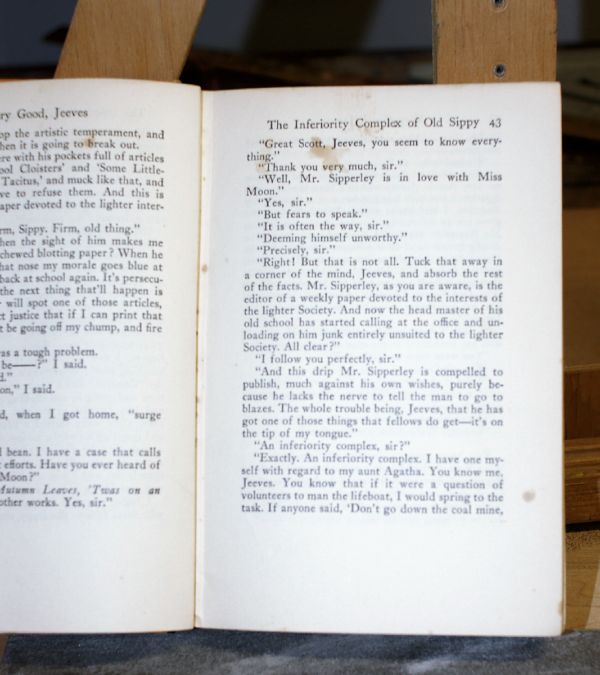 ry Good, Jeeves
op the artistic temperament, and
hen it is going to break out.
ere with his pockets full of articles
ool Cloisters' and 'Some Little-
Tacitus,' and muck like that, and
ve to refuse them. And this is
aper devoted to the lighter inter-
rm, Sippy. Firm, old thing."
hen the sight of him makes me
chewed blotting paper? When he
hat nose my morale goes blue at
back at school again. It's persecu-
the next thing that'll happen is
r will spot one of those articles,
ct justice that if I can print that
t be going off my chump, and fire
as a tough problem.
be——?" I said.
d."
on," I said.
d, when I got home, "surge
l bean. I have a case that calls
efforts. Have you ever heard of
Moon?"
Autumn Leaves, 'Twas on an
other works. Yes, sir."
The Inferiority Complex of Old Sippy 43
"Great Scott, Jeeves, you seem to know every-
thing."
"Thank you very much, sir."
"Well, Mr. Sipperley is in love with Miss
Moon."
"Yes, sir."
"But fears to speak."
"It is often the way, sir."
"Deeming himself unworthy."
"Precisely, sir."
"Right! But that is not all. Tuck that away in
a corner of the mind, Jeeves, and absorb the rest
of the facts. Mr. Sipperley, as you are aware, is the
editor of a weekly paper devoted to the interests of
the lighter Society. And now the head master of his
old school has started calling at the office and un-
loading on him junk entirely unsuited to the lighter
Society. All clear?"
"I follow you perfectly, sir."
"And this drip Mr. Sipperley is compelled to
publish, much against his own wishes, purely be-
cause he lacks the nerve to tell the man to go to
blazes. The whole trouble being, Jeeves, that he has
got one of those things that fellows do get—it's on
the tip of my tongue."
"An inferiority complex, sir?"
"Exactly. An inferiority complex. I have one my-
self with regard to my aunt Agatha. You know me,
Jeeves. You know that if it were a question of
volunteers to man the lifeboat, I would spring to the
task. If anyone said, 'Don't go down the coal mine,